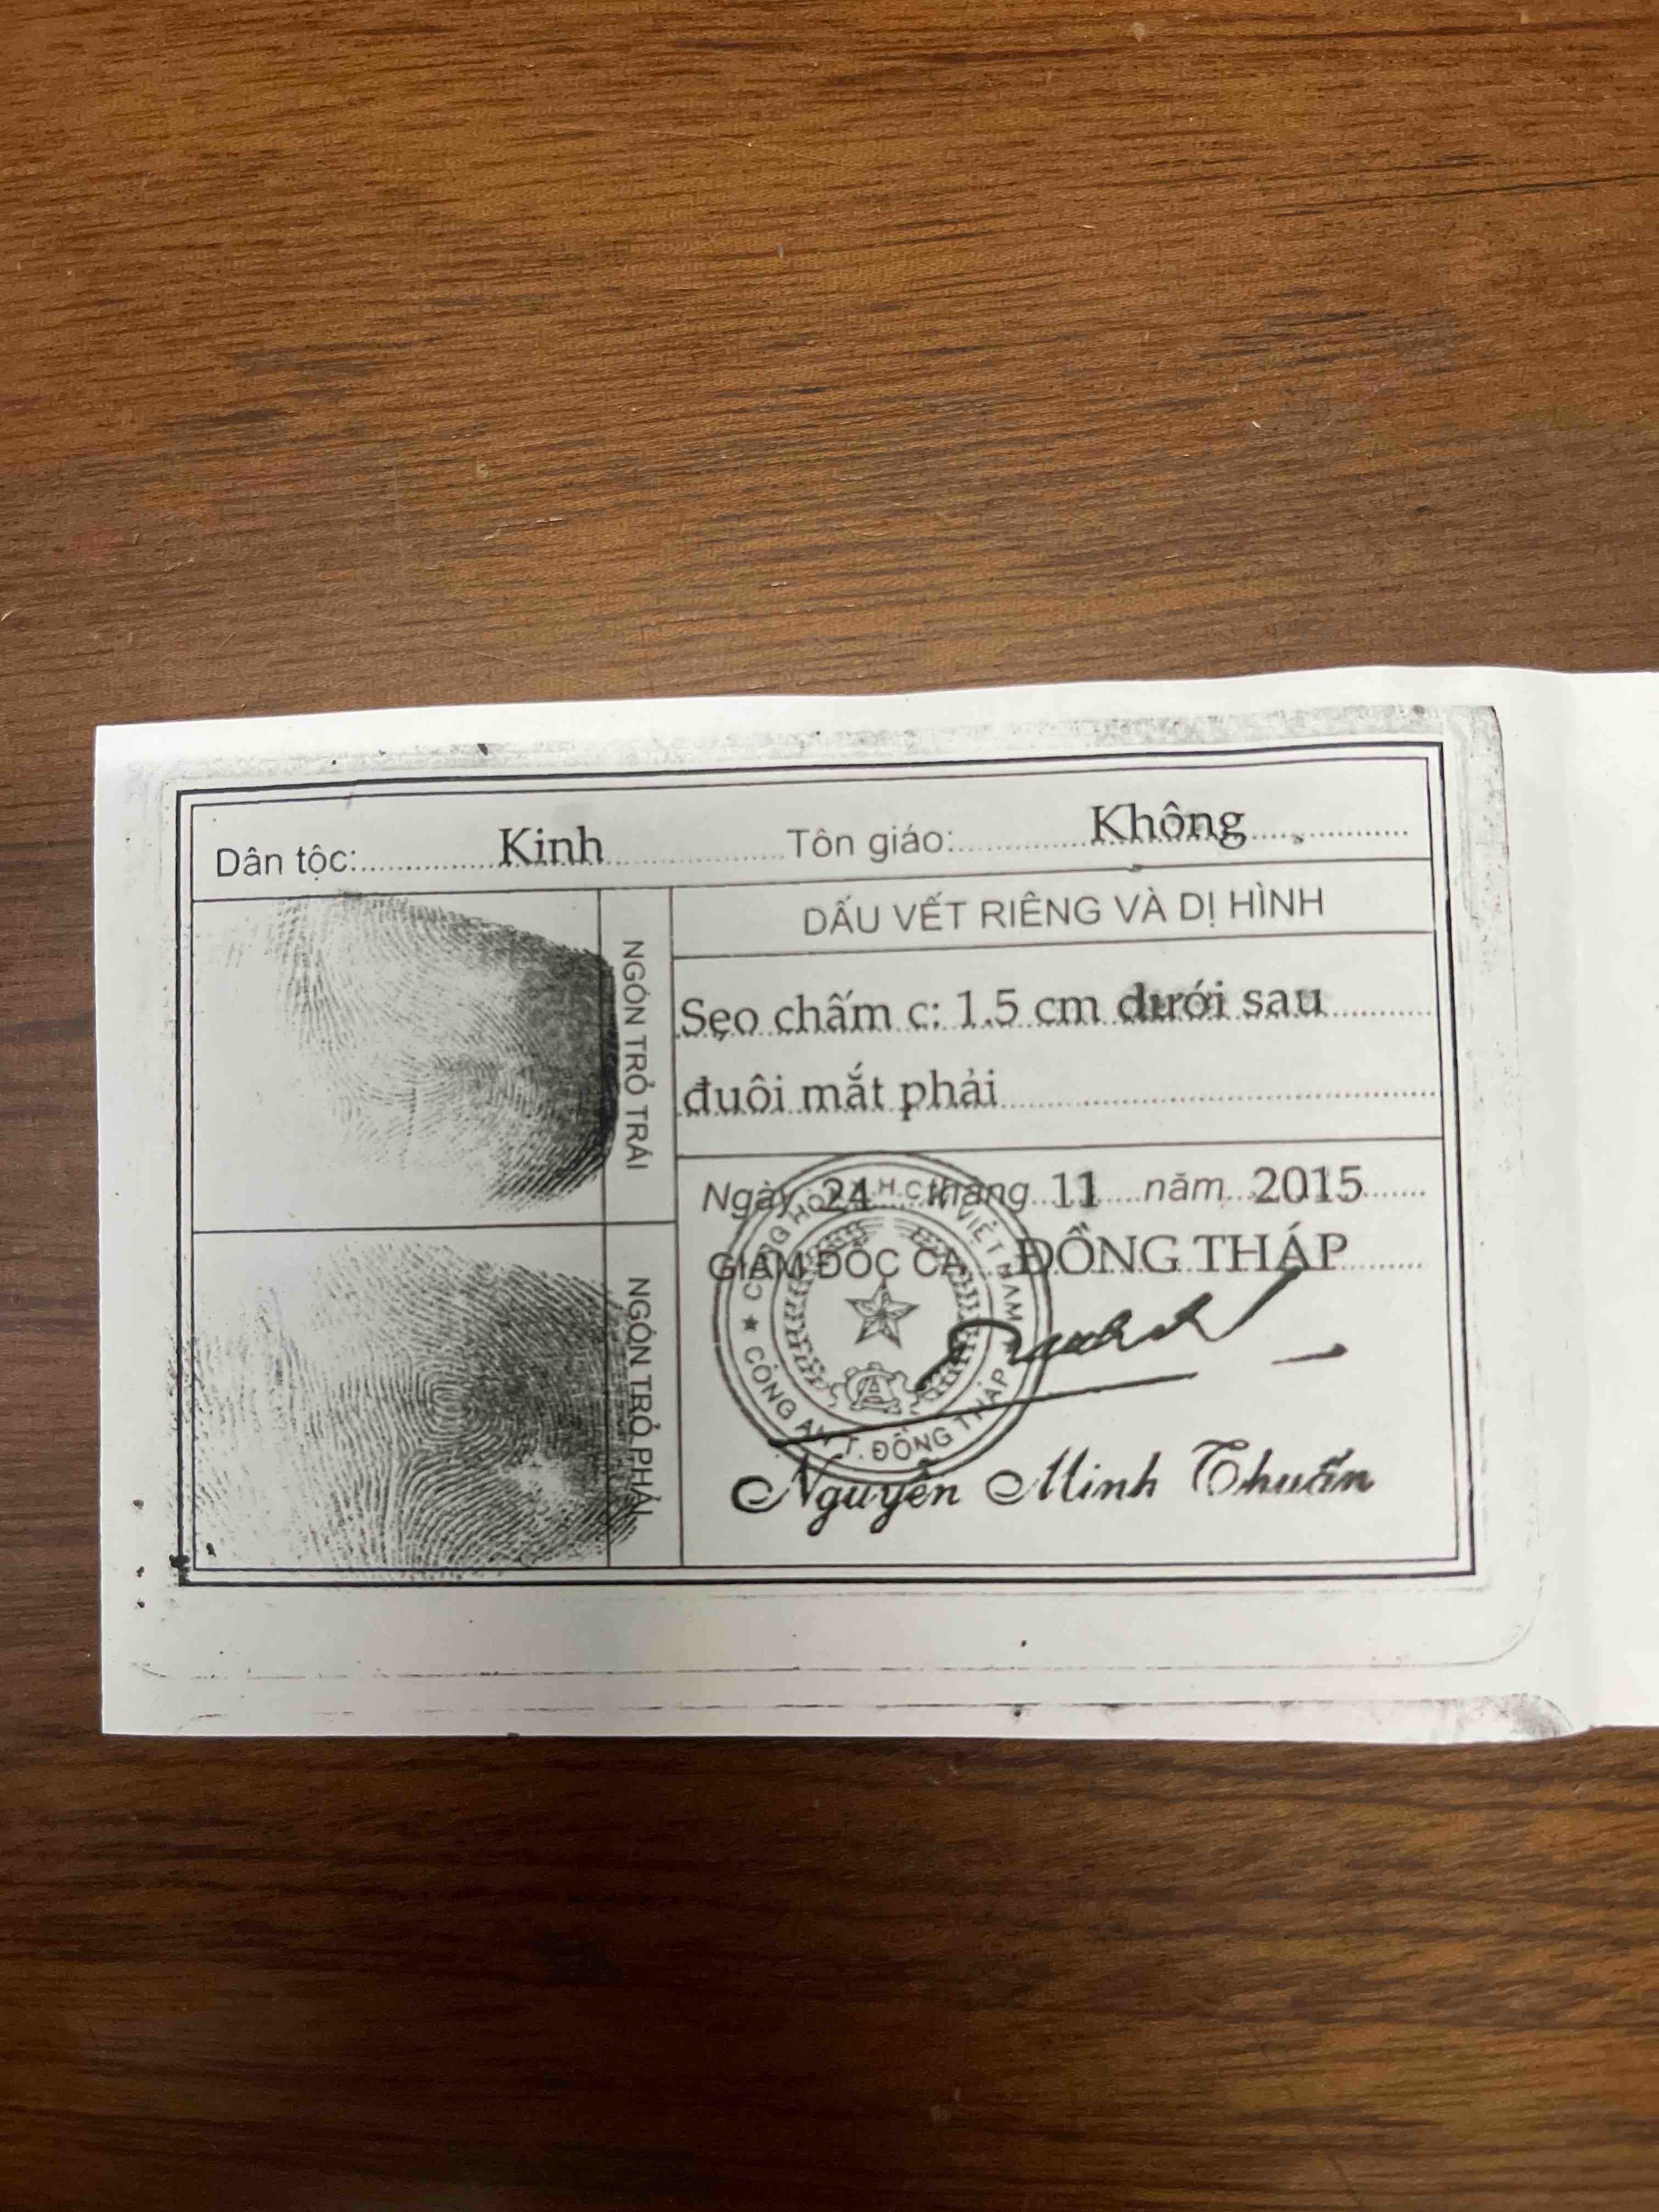 Dân tộc: Kinh Tôn giáo: Không
DẤU VẾT RIÊNG VÀ DỊ HÌNH
NGÓN TRỎ TRÁI
Sẹo chấm c: 1.5 cm dưới sau
đuôi mắt phải
NGÓN TRỎ PHẢI
Ngày 24 tháng 11 năm 2015
GIÁM ĐỐC CA ĐỒNG THÁP
CỘNG HÒA X.H.C.N VIỆT NAM
★ CÔNG AN T. ĐỒNG THÁP
Nguyễn Minh Thuấn